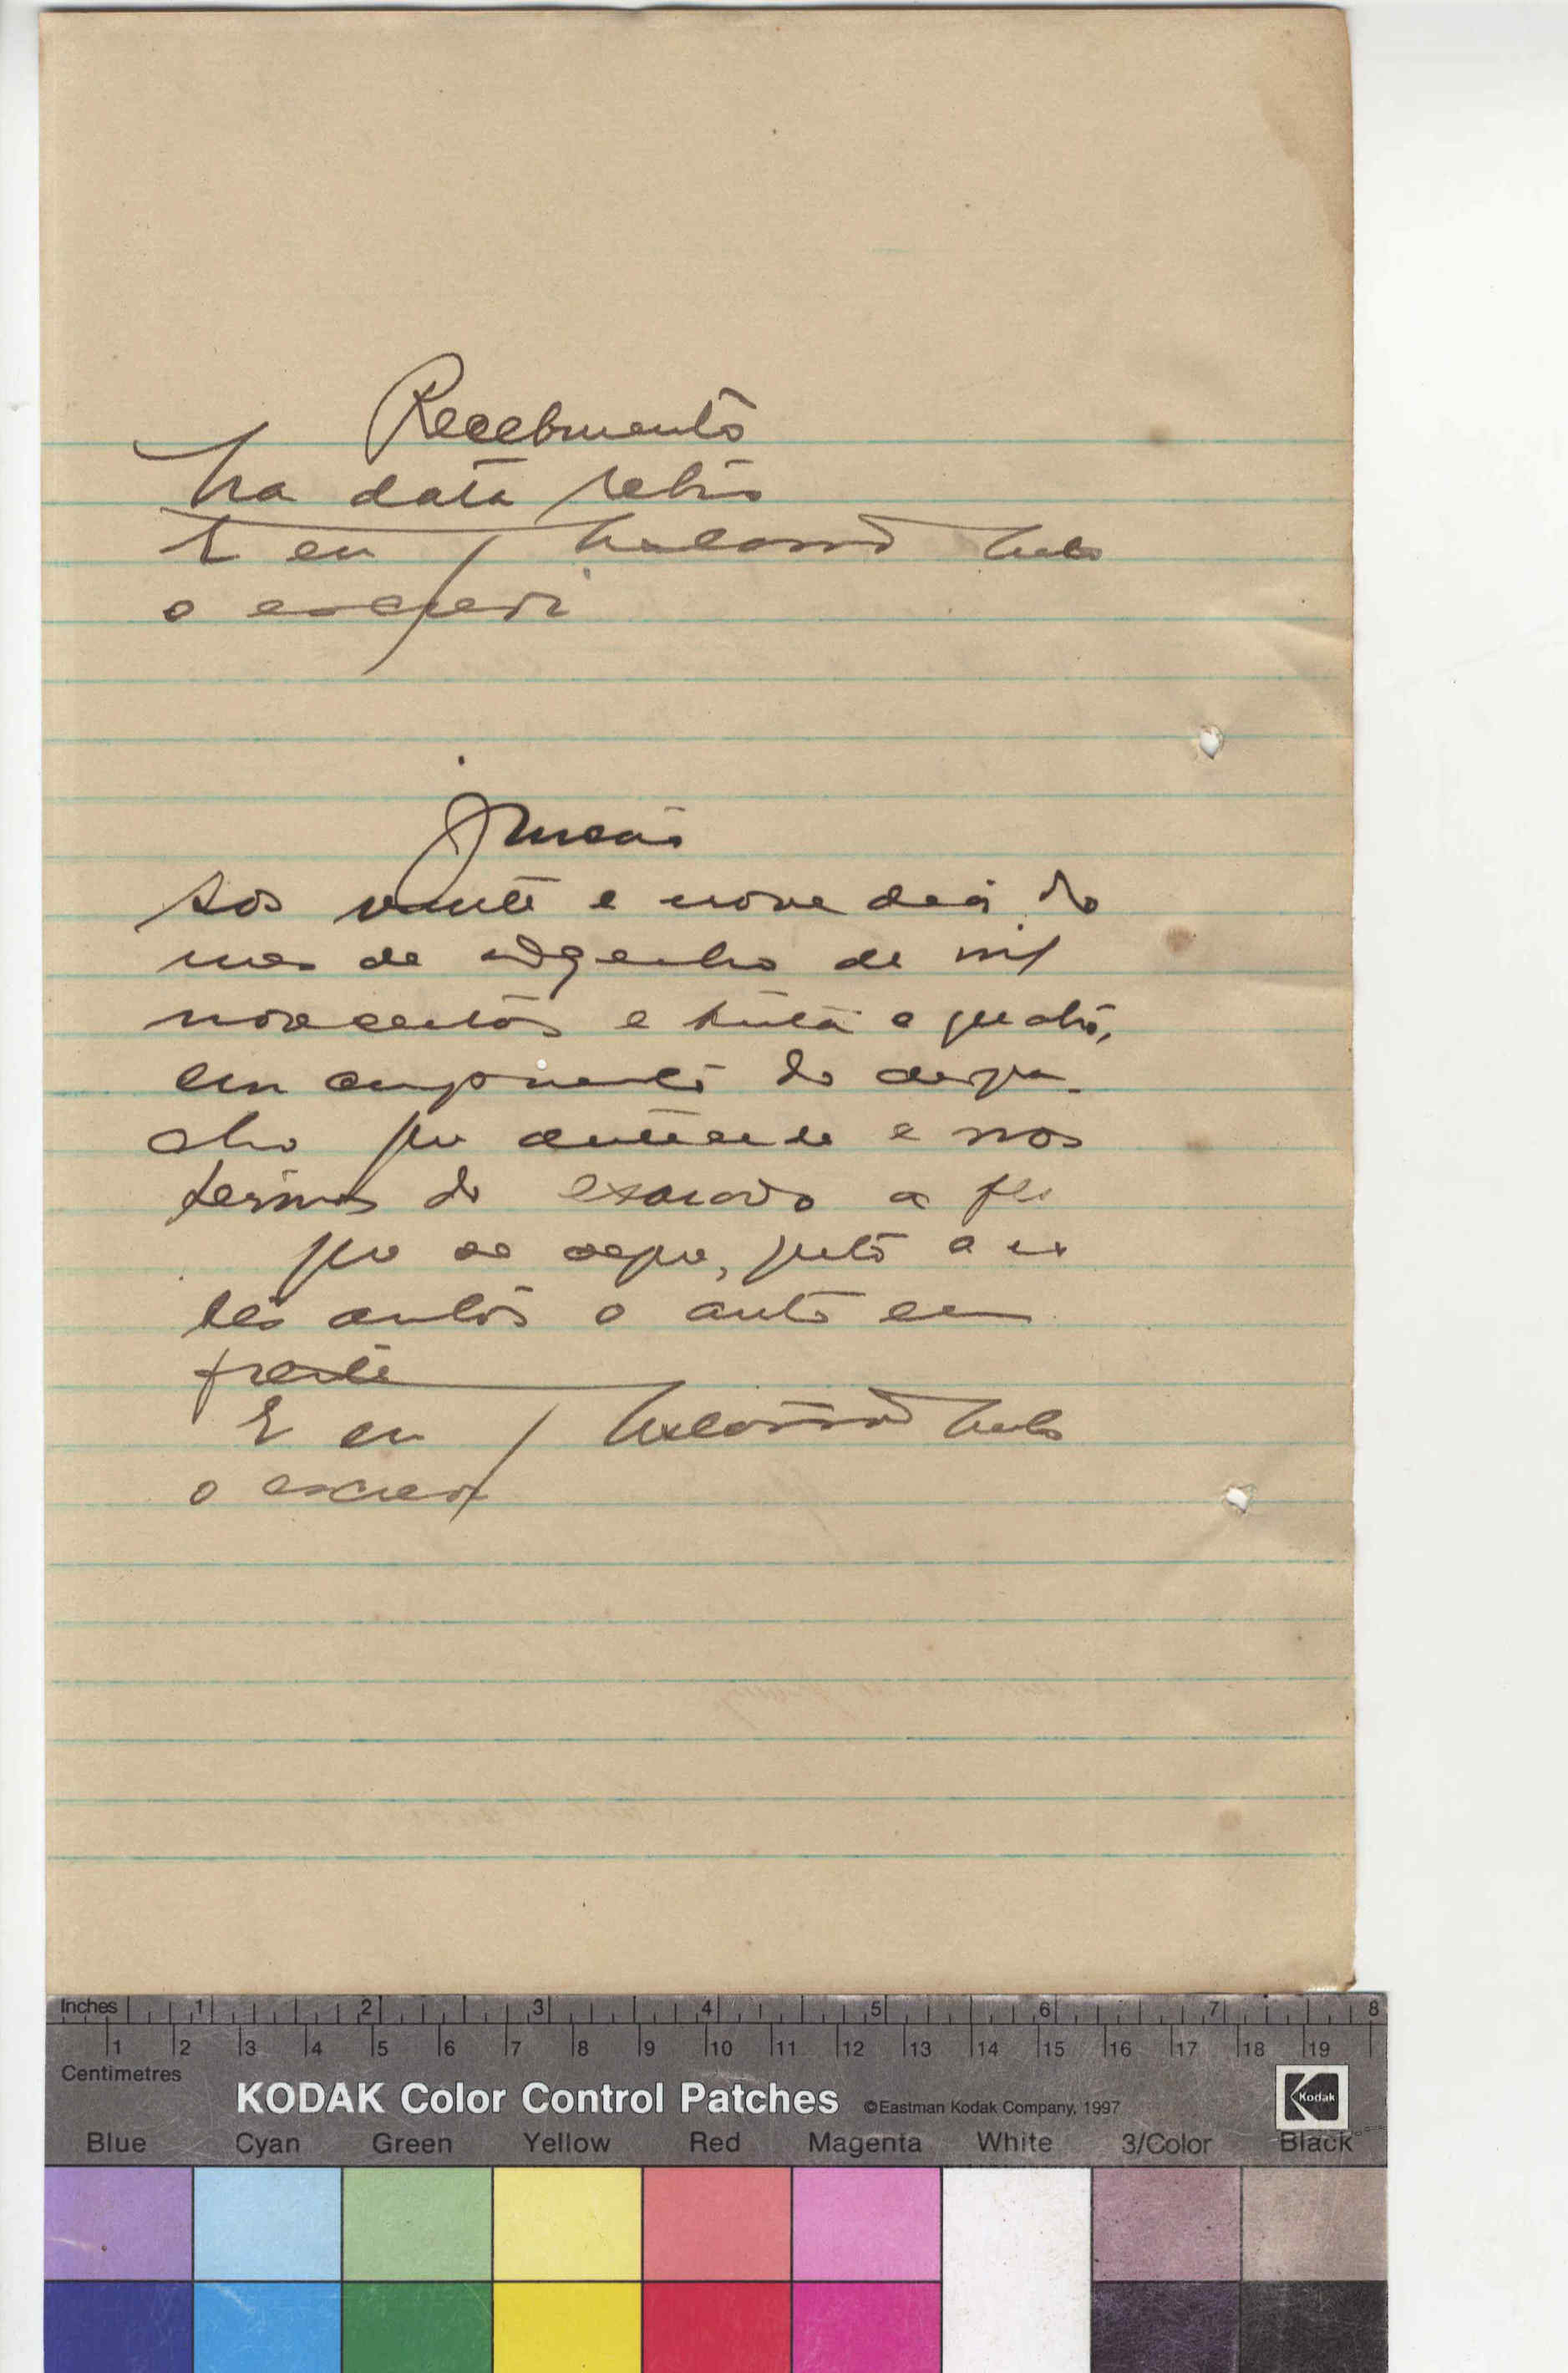 Recebimento
Na data retro
E eu
o escrevi
Juncão
Aos vinte e nove dias do
mes de de mil
novecentos e trinta e quatro,
em comprimento do despa-
cho que antecede e nos
termos do exarado a fls
que se segue, junto a es
tes autos o auto em
frente
E eu
o escrevi
Inches 1 2 3 4 5 6 7 8
1 2 3 4 5 6 7 8 9 10 11 12 13 14 15 16 17 18 19
Centimetres
KODAK Color Control Patches ©Eastman Kodak Company, 1997 Kodak
Blue Cyan Green Yellow Red Magenta White 3/Color Black